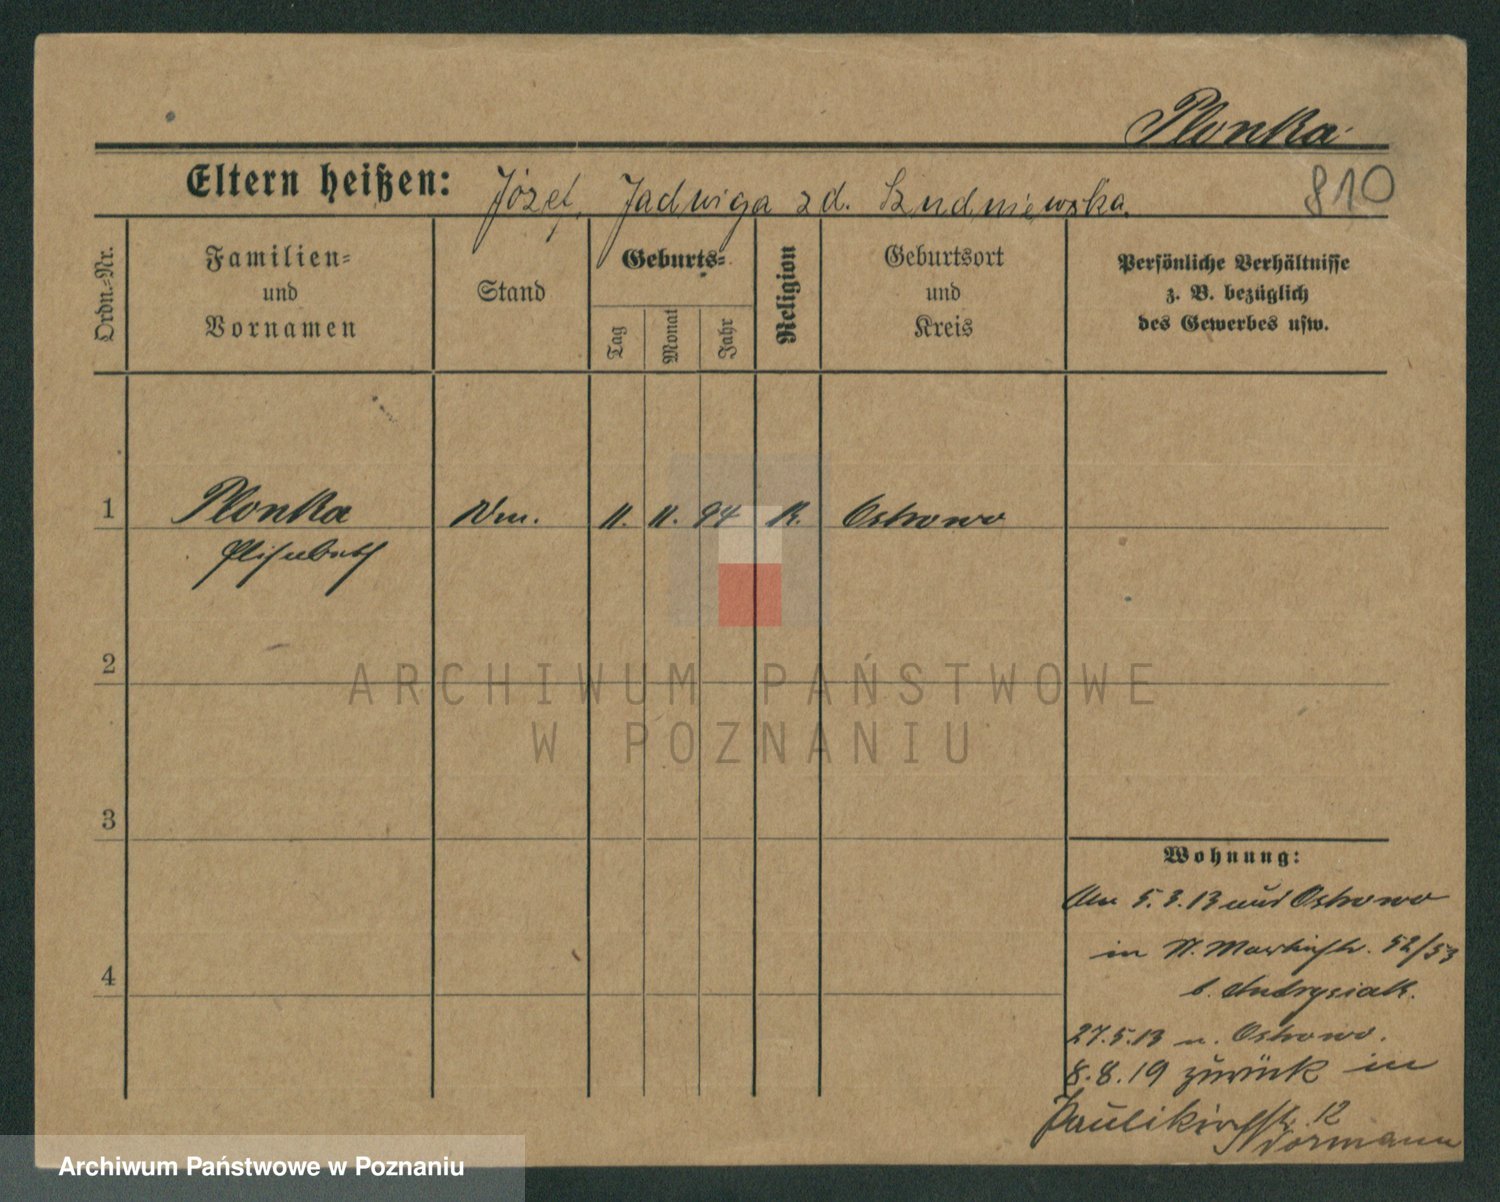 Plonka
Eltern heißen: Józef, Jadwiga zd. Szudniewska.
810
Ordn.=Nr.
Familien=
und
Vornamen
Stand
Geburts=
Tag
Monat
Jahr
Religion
Geburtsort
und
Kreis
Persönliche Verhältnisse
z. B. bezüglich
des Gewerbes usw.
1 Plonka 11. 11. 94 K. Ostrowo
Elisabeth
2
ARCHIWUM PAŃSTWOWE
W POZNANIU
3
Wohnung:
5.3.13 aus Ostrowo
in St. Martinstr. 52/53
b. Andrysiak.
4
27.5.13 n. Ostrowo.
8.8.19 zurück in
Paulikirchstr. 12
Archiwum Państwowe w Poznaniu